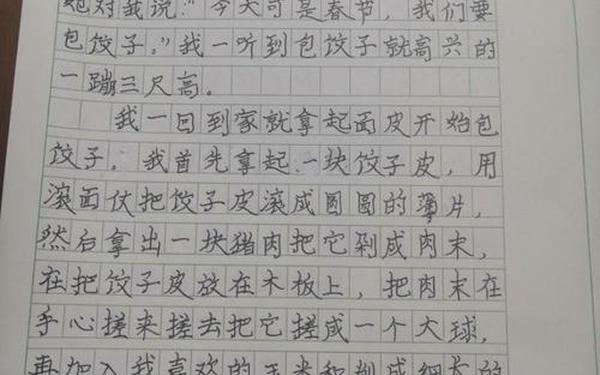 她对我说:“今天可是春节,我们要
包饺子。”我一听到包饺子就高兴的
一蹦三尺高。
我一回到家就拿起面皮开始包
饺子,我首先拿起一块饺子皮,用
滚面仗把饺子皮滚成圆圆的薄片,
然后拿出一块猪肉把它剁成肉末,
在把饺子皮放在木板上,把肉末在
手心搓来搓去把它搓成一个大球,
再加入我喜欢的玉米和削成细长的